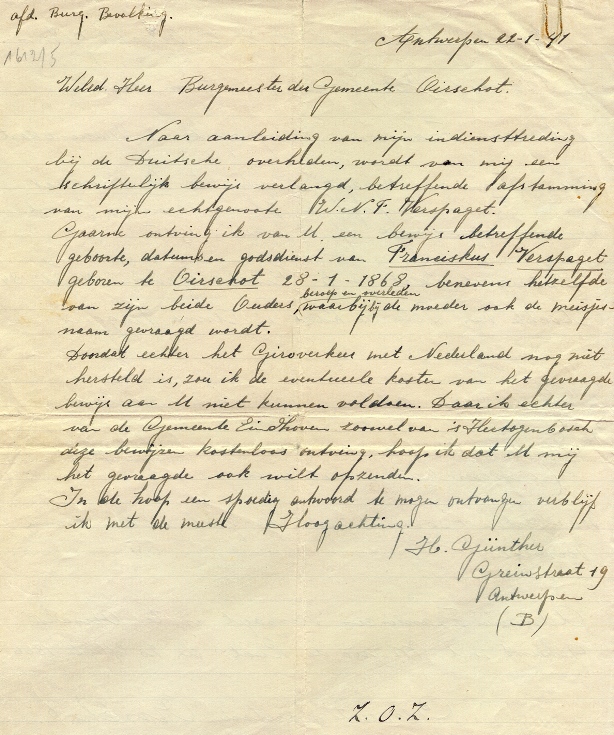 afd. Burg. Bevolking.
1613/5
Antwerpen 22-1-41
Weled. Heer Burgemeester der Gemeente Oirschot.
Naar aanleiding van mijn indiensttreding
bij de Duitsche overheden, wordt van mij een
schriftelijk bewijs verlangd, betreffende afstamming
van mijn echtgenoote W. N. F. Verspaget.
Gaarne ontving ik van U een bewijs betreffende
geboorte, datum en godsdienst van Franciskus Verspaget
geboren te Oirschot 28-1-1868, benevens hetzelfde
beroep en overleden
van zijn beide Ouders, waarbij bij de moeder ook de meisjes-
naam gevraagd wordt.
Doordat echter het Giroverkeer met Nederland nog niet
hersteld is, zou ik de eventueele kosten van het gevraagde
bewijs aan U niet kunnen voldoen. Daar ik echter
van de Gemeente Eindhoven zoowel van 's Hertogenbosch
deze bewijzen kostenloos ontving, hoop ik dat U mij
het gevraagde ook wilt opzenden.
In de hoop een spoedig antwoord te mogen ontvangen verblijf
ik met de meeste Hoogachting.
H. Günther
Greinstraat 19
Antwerpen
(B)
Z.O.Z.